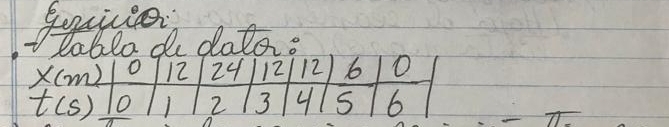 Ejercicio:
- tabla de datos:
X(m) | 0 | 12 | 24 | 12 | 12 | 6 | 0 |
t(s) | 0 | 1 | 2 | 3 | 4 | 5 | 6 |